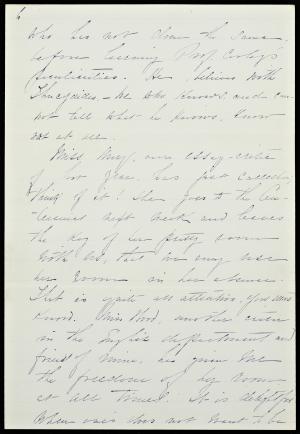 6
who has not done the same
before learning Prof. Cooley's
peculiarities. He believes with
Thucydides, - He who knows and can
not tell what he knows, knows
not at all.
Miss May, our essay-critic
of last year, has just called.
Think of it! She goes to the Cen-
tennial next week and leaves
the key of her pretty room
with us, that we may use
her room in her absence.
That is quite an attention,
know. Miss Wood, another critic
in the English department and
friend of mine, has given me
the freedom of her room
at all times. It is delightful
when one does not want to be